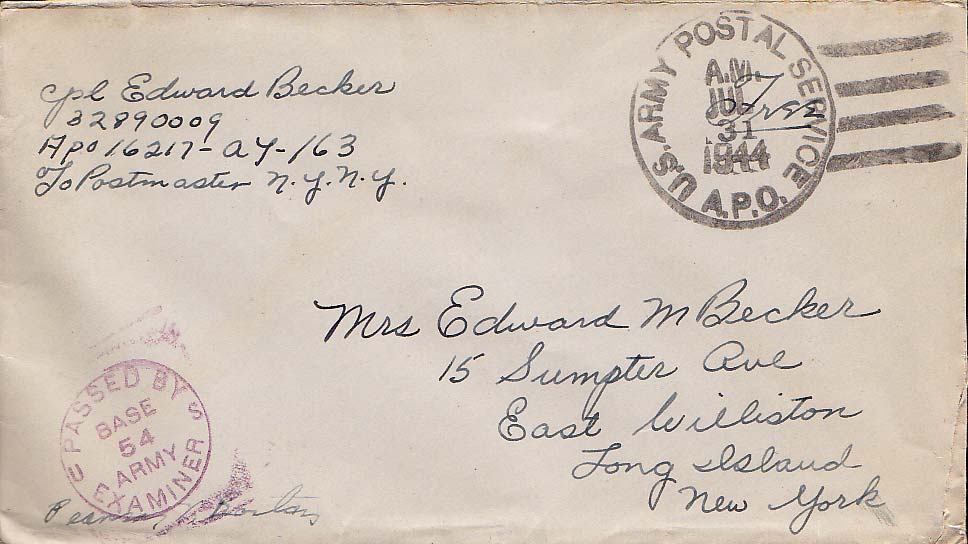 Cpl Edward Becker
32890009
Apo 16217-AY-163
℅ Postmaster N.Y.N.Y.
U.S. ARMY POSTAL SERVICE
A.M.
JUL
31
1944
A.P.O.
Free
Mrs Edward M Becker
15 Sumpter Ave
East Williston
Long Island
New York
PASSED BY
BASE
54
ARMY
EXAMINER